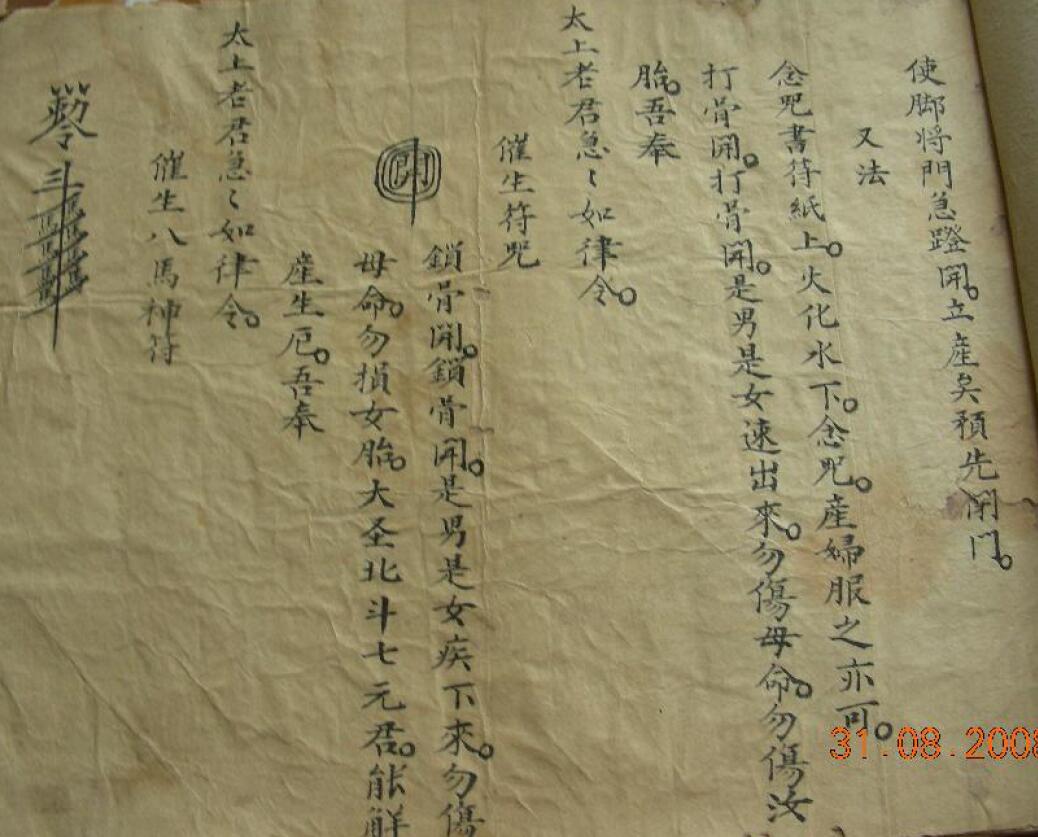 使脚将門急蹬開。立產矣預先閉門。
又法
念咒書符紙上。火化水下。念咒。產婦服之亦可。
打骨開。打骨開。是男是女速出來。勿傷母命。勿傷汝
胎。吾奉
太上老君急〻如律令。
催生符咒
開
鎖骨開。鎖骨開。是男是女疾下來。勿傷
母命。勿損女胎。大圣北斗七元君。能解
產生厄。吾奉
太上老君急〻如律令。
催生八馬神符
31.08.2008